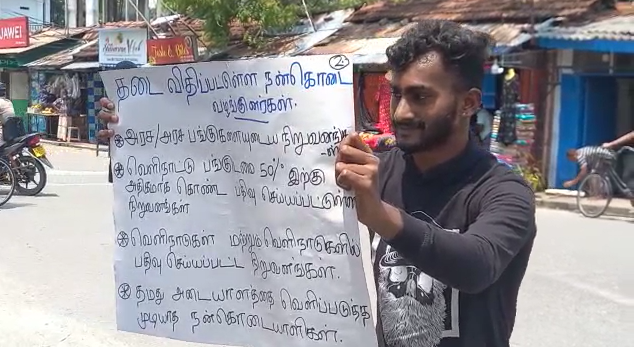 JAWEI
2
தடை விதிப்பட்ளௌ நன்கொடை
வழங்குனர்கள்.
அரச/அரச பங்குகளையுடைய நிறுவனங்கள்
வெளிநாட்டு பங்குடமை 50% இற்கு
அதிகமாக கொண்ட பதிவு செய்யப்பட்டுள்ள
நிறுவனங்கள்
வெளிநாடுகள் மற்றும் வெளிநாடுகளில்
பதிவு செய்யப்பட்ட நிறுவனங்கள்.
தமது அடையாளத்தை வெளிப்படுத்த
முடியாத நன்கொடையாளிகள்.